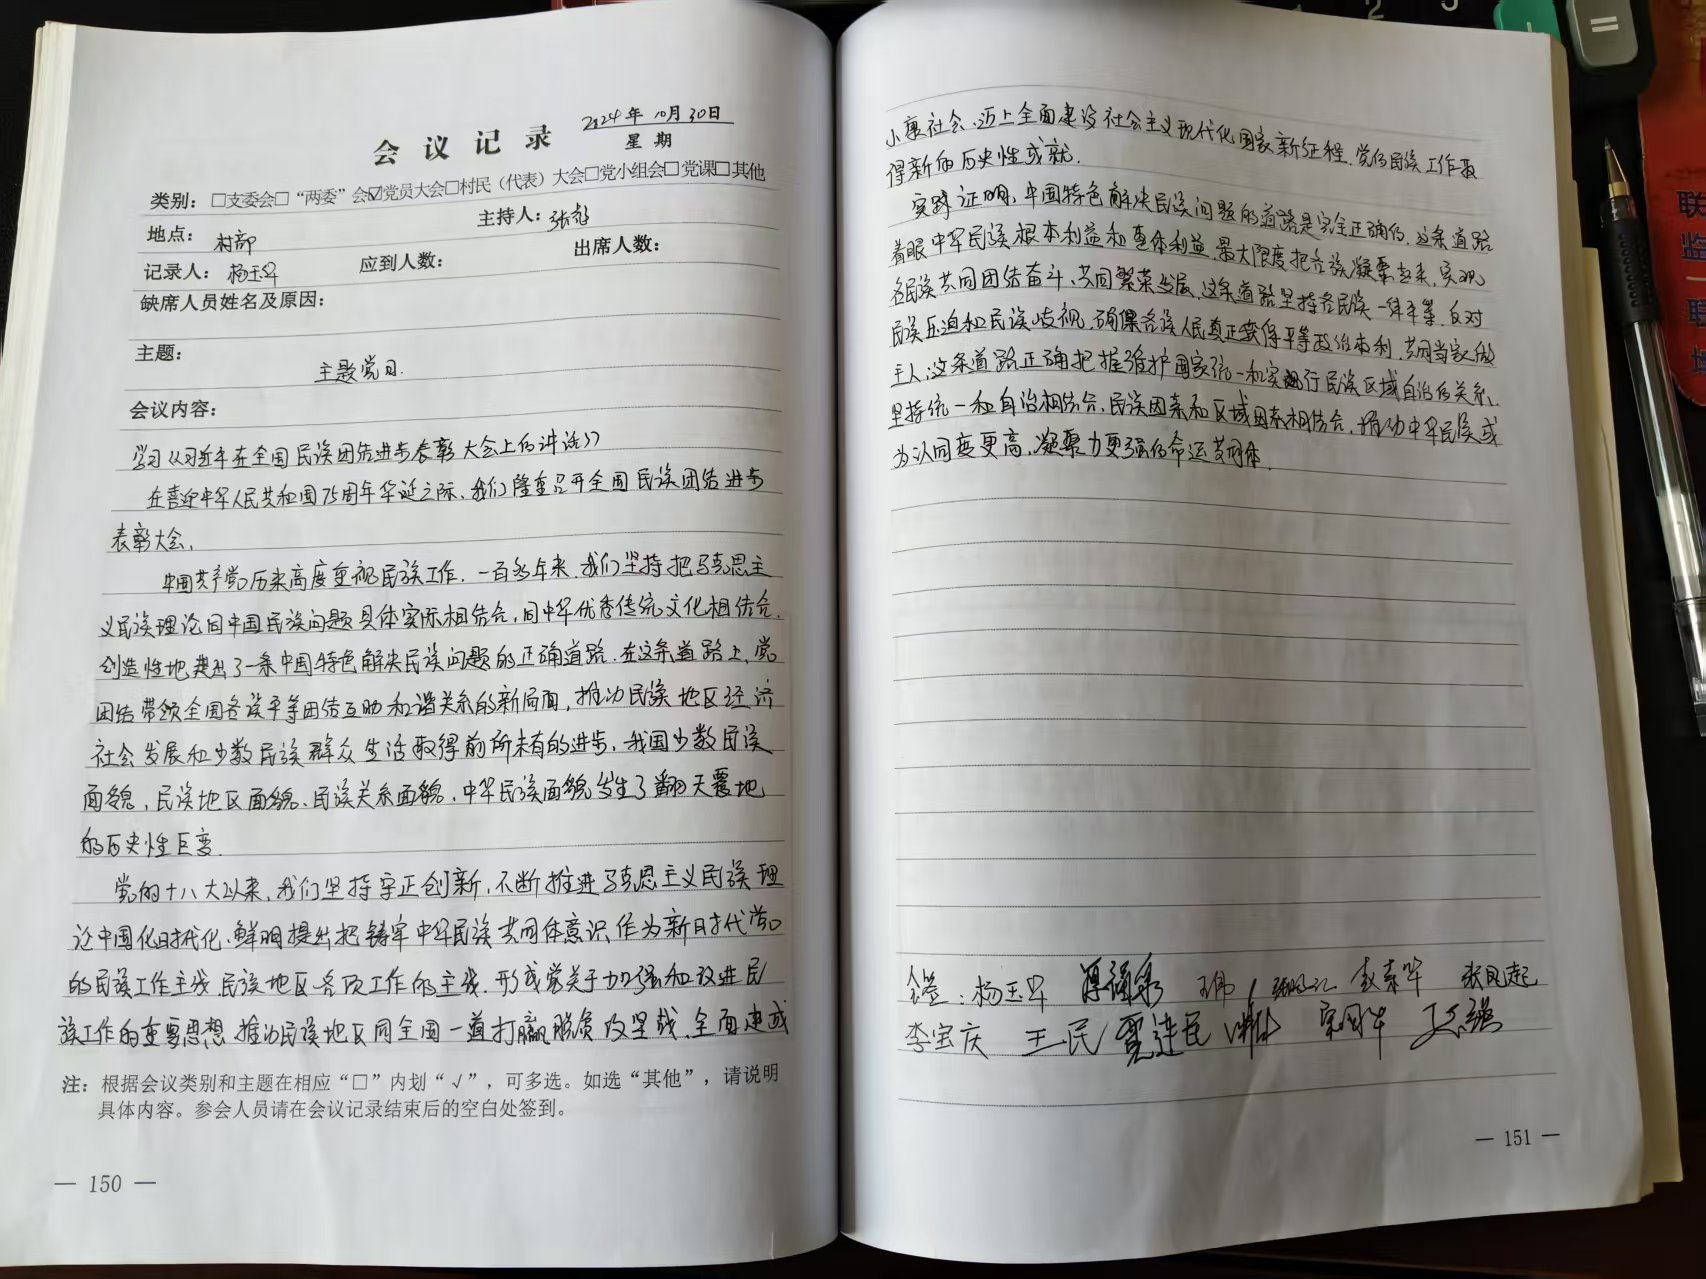 2024年10月30日
会议记录
星期
类别：□支委会□“两委”会☑党员大会□村民（代表）大会□党小组会□党课□其他
地点：村部 主持人：张
记录人：杨玉 应到人数： 出席人数：
缺席人员姓名及原因：
主题：
主题党日.
会议内容：
学习《习近平在全国民族团结进步表彰大会上的讲话》
在喜迎中华人民共和国75周年华诞之际，我们隆重召开全国民族团结进步
表彰大会,
中国共产党历来高度重视民族工作，一百多年来，我们坚持把马克思主
义民族理论同中国民族问题具体实际相结合，同中华优秀传统文化相结合，
创造性地走出了一条中国特色解决民族问题的正确道路.在这条道路上，党
团结带领全国各族平等团结互助和谐关系的新局面，推动民族地区经济
社会发展和少数民族群众生活取得前所未有的进步，我国少数民族
面貌，民族地区面貌、民族关系面貌、中华民族面貌发生了翻天覆地
的历史性巨变.
党的十八大以来，我们坚持守正创新，不断推进马克思主义民族理
论中国化时代化，鲜明提出把铸牢中华民族共同体意识作为新时代党
的民族工作主线，民族地区各项工作的主线，形成党关于加强和改进民
族工作的重要思想，推动民族地区同全国一道打赢脱贫攻坚战，全面建成
注：根据会议类别和主题在相应“□”内划“√”，可多选。如选“其他”，请说明
具体内容。参会人员请在会议记录结束后的空白处签到。
— 150 —
小康社会、迈上全面建设社会主义现代化国家新征程，党的民族工作取
得新的历史性成就.
实践证明，中国特色解决民族问题的道路是完全正确的，这条道路
着眼中华民族根本利益和整体利益，最大限度把各族凝聚起来，实现
各民族共同团结奋斗、共同繁荣发展，这条道路坚持各民族一律平等，反对
民族压迫和民族歧视，确保各族人民真正获得平等政治权利，共同当家做
主人；这条道路正确把握维护国家统一和实行民族区域自治的关系，
坚持统一和自治相结合，民族因素和区域因素相结合，推动中华民族成
为认同度更高，凝聚力更强的命运共同体.
签：杨玉 王伟 赵素华 张凤起
李宝庆 王民
— 151 —